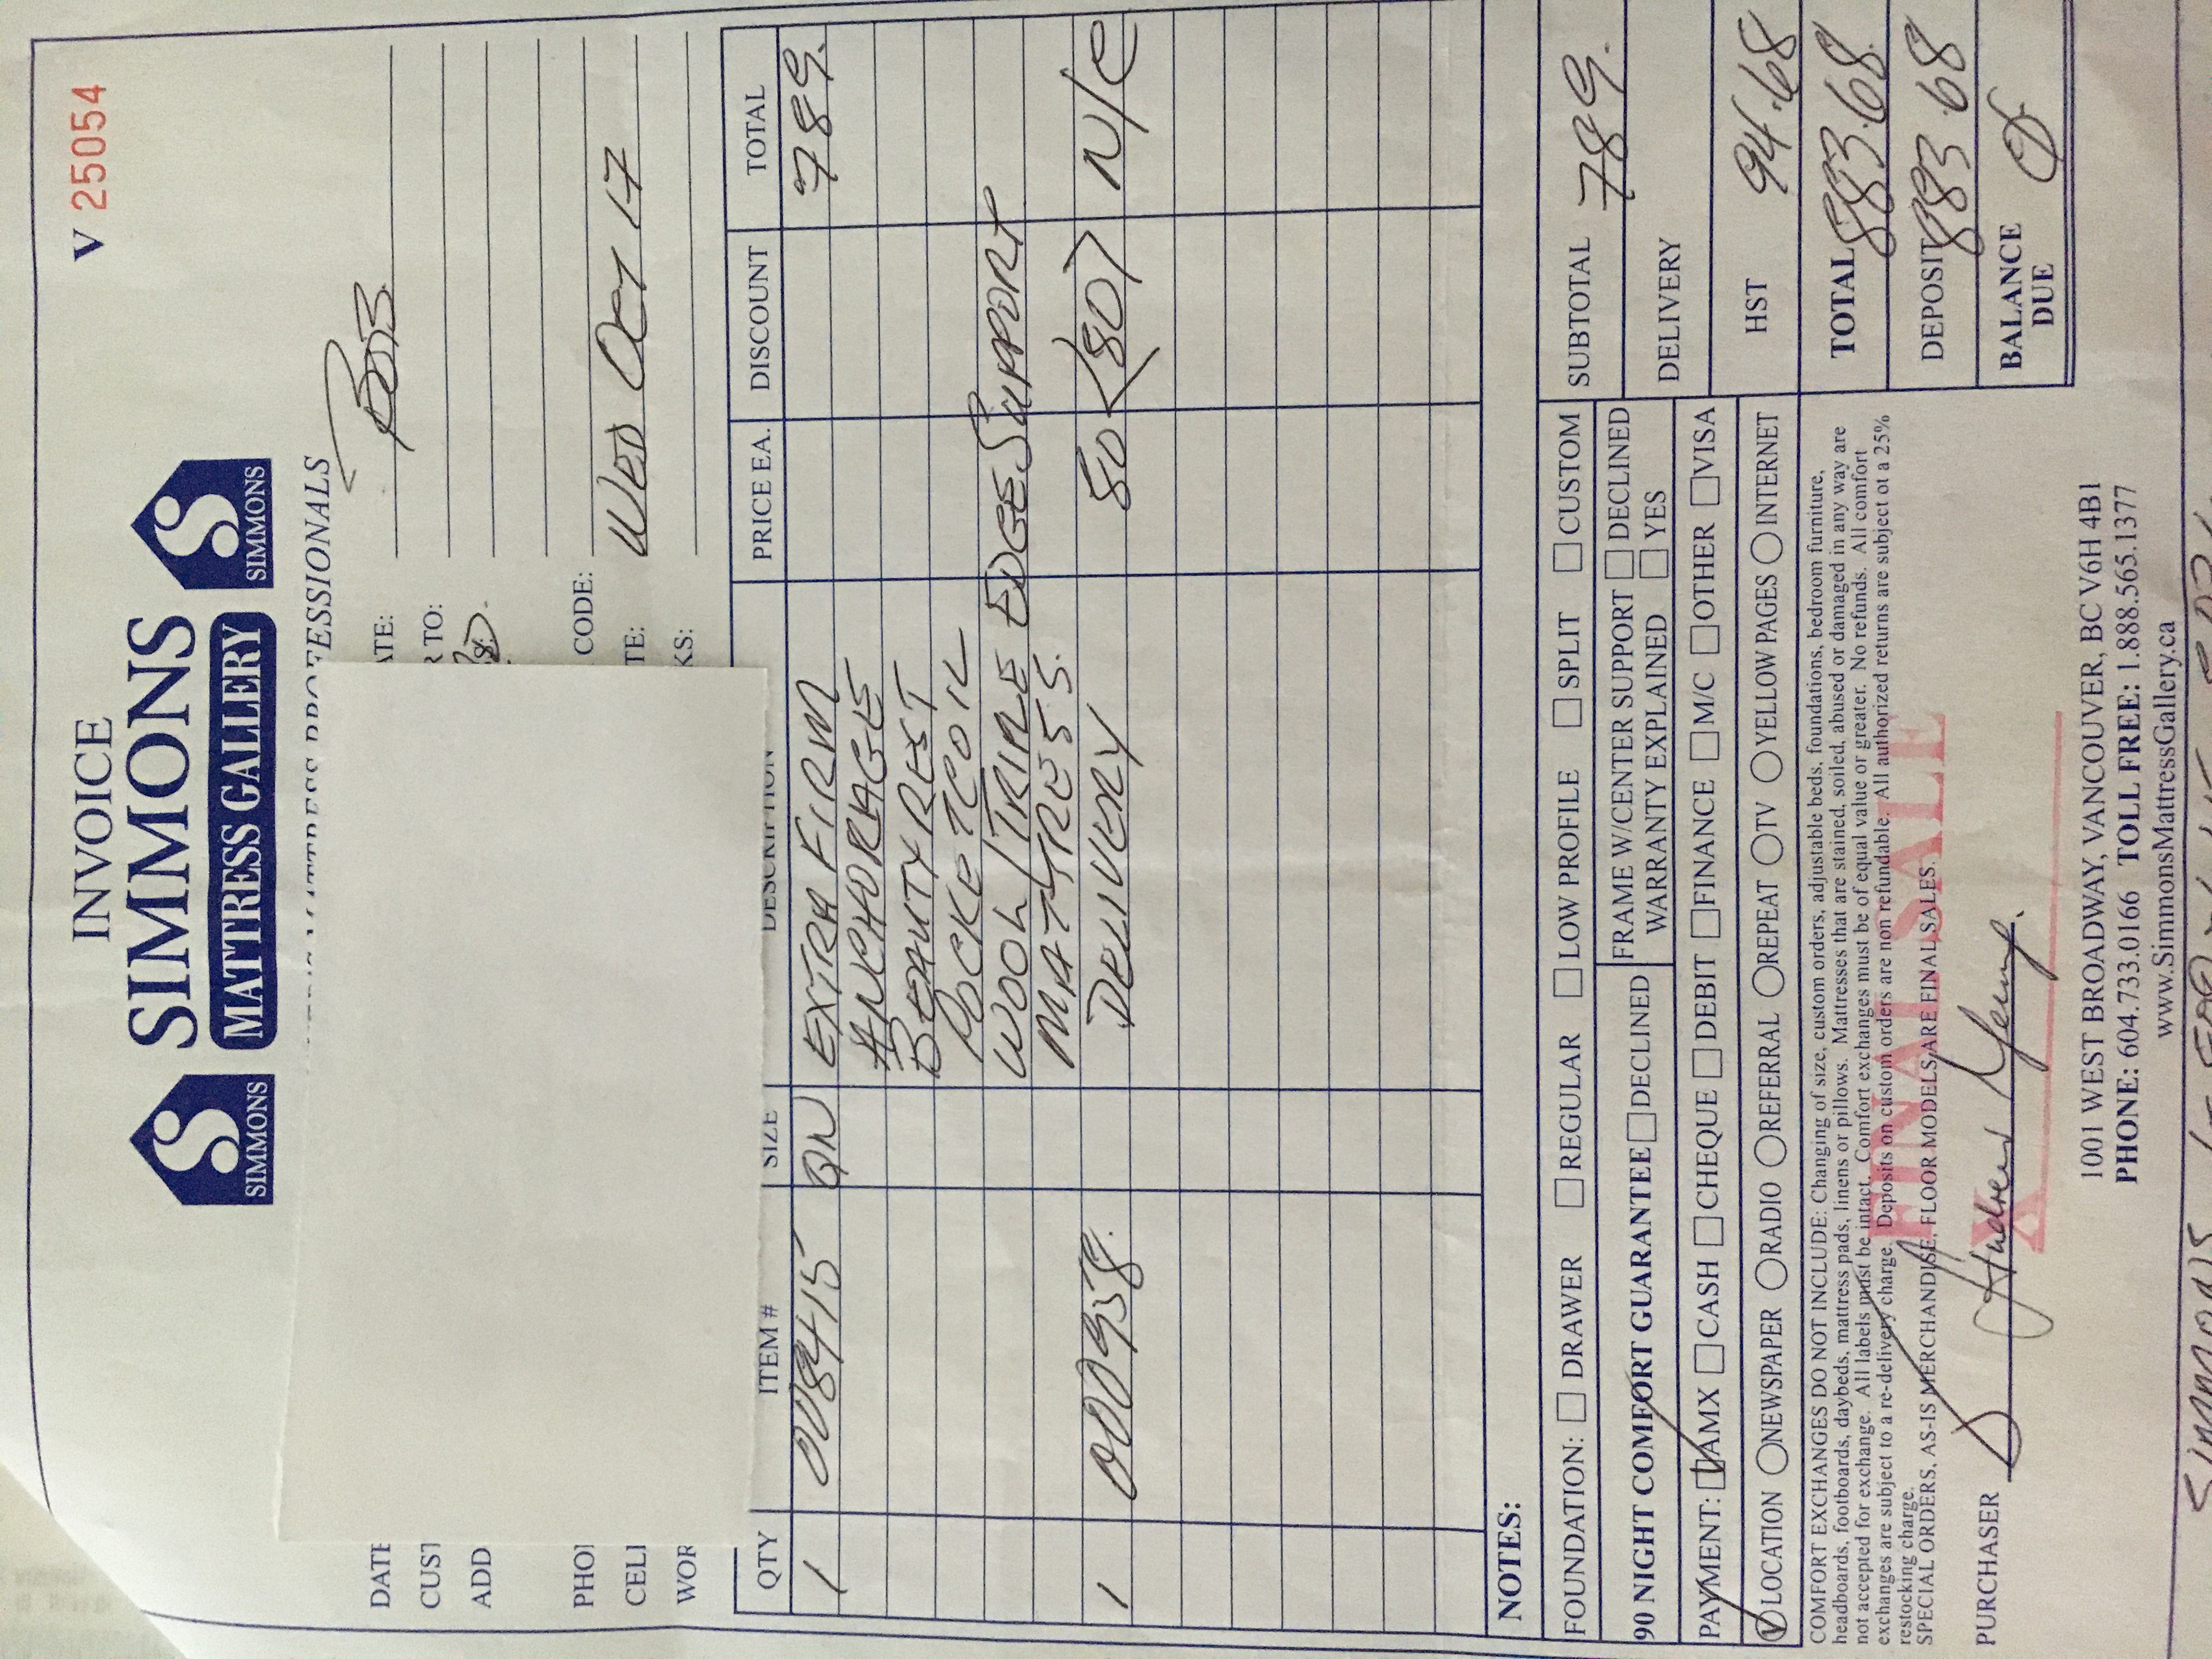 INVOICE
V 25054
SIMMONS
MATTRESS GALLERY
SIMMONS
SIMMONS
MATTRESS PROFESSIONALS
DATE
ATE:
BOB
CUST
R TO:
ADD
PHO
CODE:
CELL
TE: WED OCT 17
WOR
KS:
QTY ITEM # SIZE DESCRIPTION PRICE EA. DISCOUNT TOTAL
1 008415 QN EXTRA FIRM 789.
ANCHORAGE
BEAUTYREST
POCKETCOIL
WOOL/TRIPLE EDGE SUPPORT
MATTRESS.
1 000958. DELIVERY 80 <80> N/C
NOTES:
FOUNDATION: DRAWER REGULAR LOW PROFILE SPLIT CUSTOM
SUBTOTAL 789.
90 NIGHT COMFORT GUARANTEE DECLINED
FRAME W/CENTER SUPPORT DECLINED
WARRANTY EXPLAINED YES
DELIVERY
PAYMENT: AMX CASH CHEQUE DEBIT FINANCE M/C OTHER VISA
HST 94.68
LOCATION NEWSPAPER RADIO REFERRAL REPEAT TV YELLOW PAGES INTERNET
TOTAL 883.68
DEPOSIT 883.68
BALANCE DUE Ø
COMFORT EXCHANGES DO NOT INCLUDE: Changing of size, custom orders, adjustable beds, foundations, bedroom furniture,
headboards, footboards, daybeds, mattress pads, linens or pillows. Mattresses that are stained, soiled, abused or damaged in any way are
not accepted for exchange. All labels must be intact. Comfort exchanges must be of equal value or greater. No refunds. All comfort
exchanges are subject to a re-delivery charge. Deposits on custom orders are non refundable. All authorized returns are subject ot a 25%
restocking charge.
SPECIAL ORDERS, AS-IS MERCHANDISE, FLOOR MODELS ARE FINAL SALES.
FINAL SALE
X
PURCHASER
1001 WEST BROADWAY, VANCOUVER, BC V6H 4B1
PHONE: 604.733.0166 TOLL FREE: 1.888.565.1377
www.SimmonsMattressGallery.ca
SIMMONS